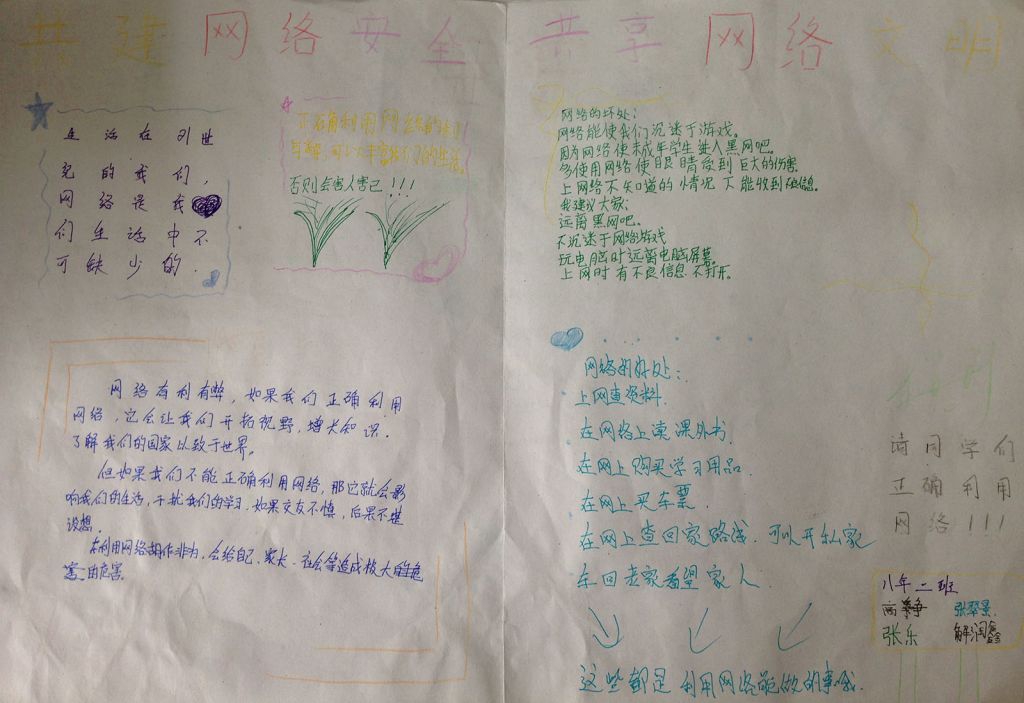 共建网络安全 共享网络文明
生活在21世
纪的我们，
网络是我
们生活中不
可缺少的.
正确利用网络的
否则会害人害己!!!
网络有利有弊，如果我们正确利用
网络，它会让我们开拓视野，增长知识.
了解我们的国家以致于世界。
但如果我们不能正确利用网络，那它就会影
响我们的生活，干扰我们的学习，如果交友不慎，后果不堪
设想.
在利用网络胡作非为，会给自己、家长、社会等造成极大的危
害
网络的坏处：
网络能使我们沉迷于游戏。
因为网络使未成年学生进入黑网吧。
多使用网络使眼睛受到巨大的伤害
上网络不知道的情况不能收到
我建议大家：
远离黑网吧。
不沉迷于网络游戏
玩电脑时远离电脑屏幕。
上网时有不良信息不打开。
网络的好处：
上网查资料.
在网络上读课外书.
在网上购买学习用品.
在网上买车票.
在网上查回家路线.可以开私家
车回老家看望家人.
这些都是利用网络能做的事哦.
请同学们
正确利用
网络!!!
八年二班
高 张翠景.
张乐 解润鑫